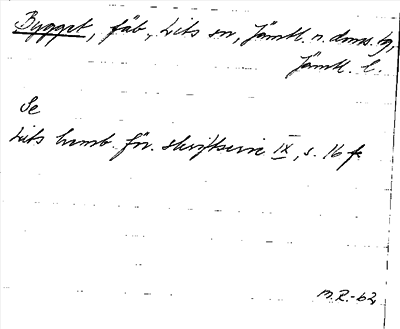 Bygget, fäb., Lits sn, Jämtl. n. doms.
Jämtl. l.
Se
Lits hemb. för. skriftserie IX, s. 16 f.
M.R.-62